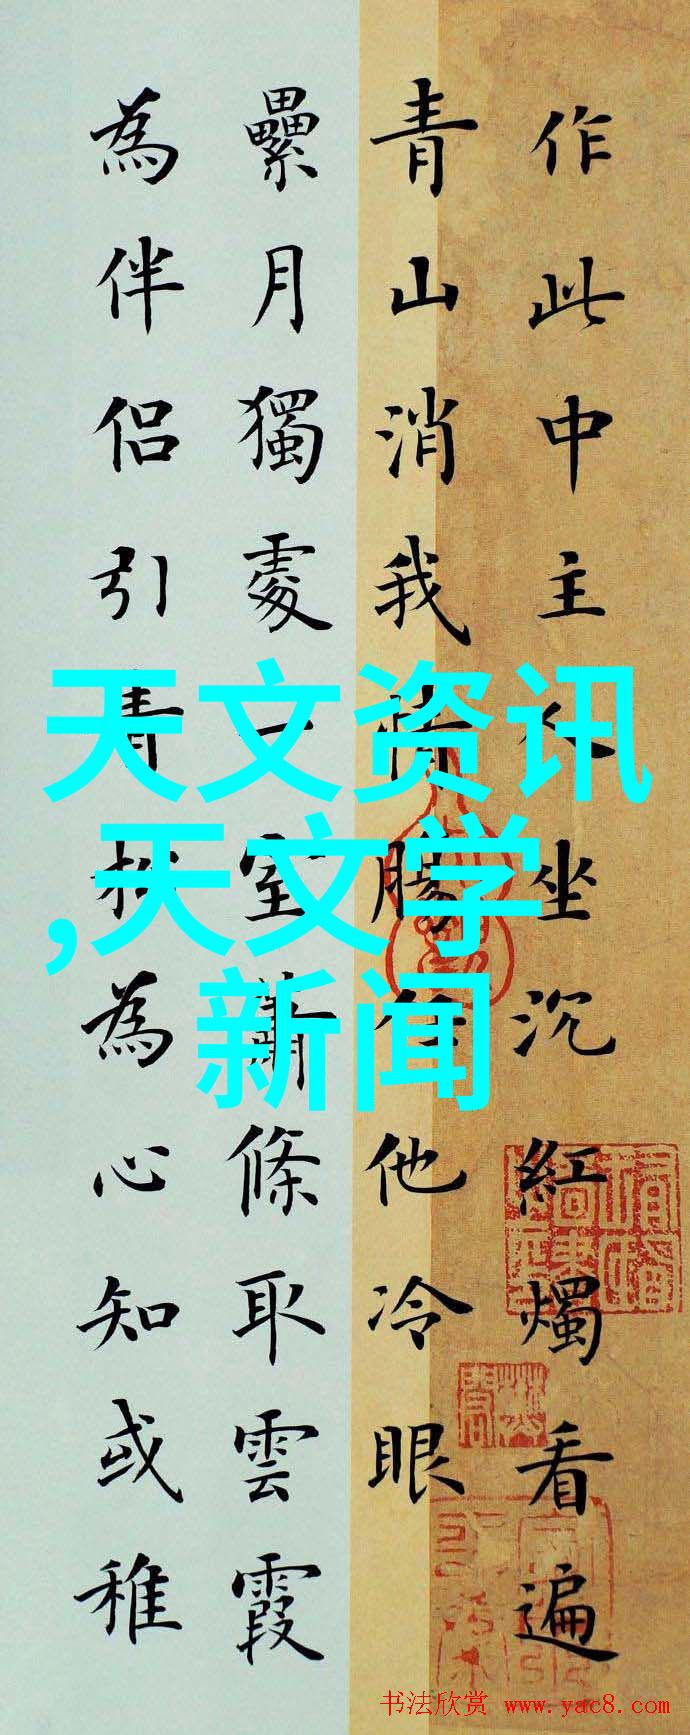 作此中主人坐沉紅燭看遍
青山消我情腸任他冷眼
纍月獨處一室蕭條取雲霞
為伴侶引青松為心知或稚
天文资讯
,天文学
新闻
书法欣赏 www.yac8.com